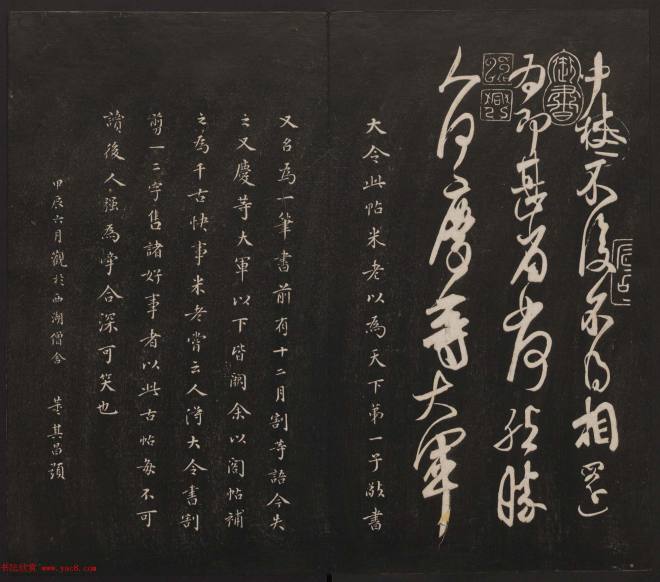 中秋不復不得相還
為即甚省如何然勝
人何慶等大軍
御書
大令此帖米老以為天下第一子敬書
又名為一筆書前有十二月割等語今失
之又慶等大軍以下皆闕余以閣帖補
之為千古快事米老嘗云人得大令書割
剪一二字售諸好事者以此古帖每不可
讀後人強為牽合深可笑也
甲辰六月觀於西湖僧舍 董其昌題
书法欣赏 www.yac8.com